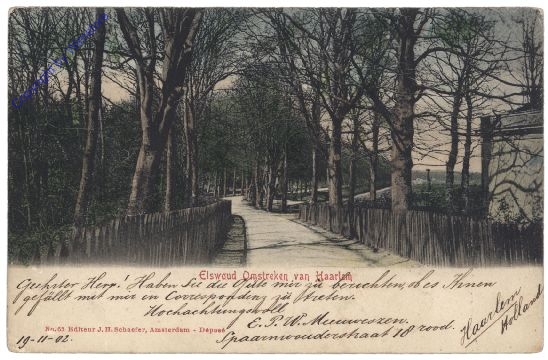 Elswoud Omstreken van Haarlem
Geehrter Herr! Haben Sie die Güte mir zu berichten, ob es Ihnen
gefällt mit mir in Correspondenz zu treten.
Hochachtungsvoll
E. P. W. Meeuweszen.
Spaarnwouderstraat 18 rood.
Haarlem
Holland
No. 65 Editeur J. H. Schaefer, Amsterdam - Déposé
19-11-02.